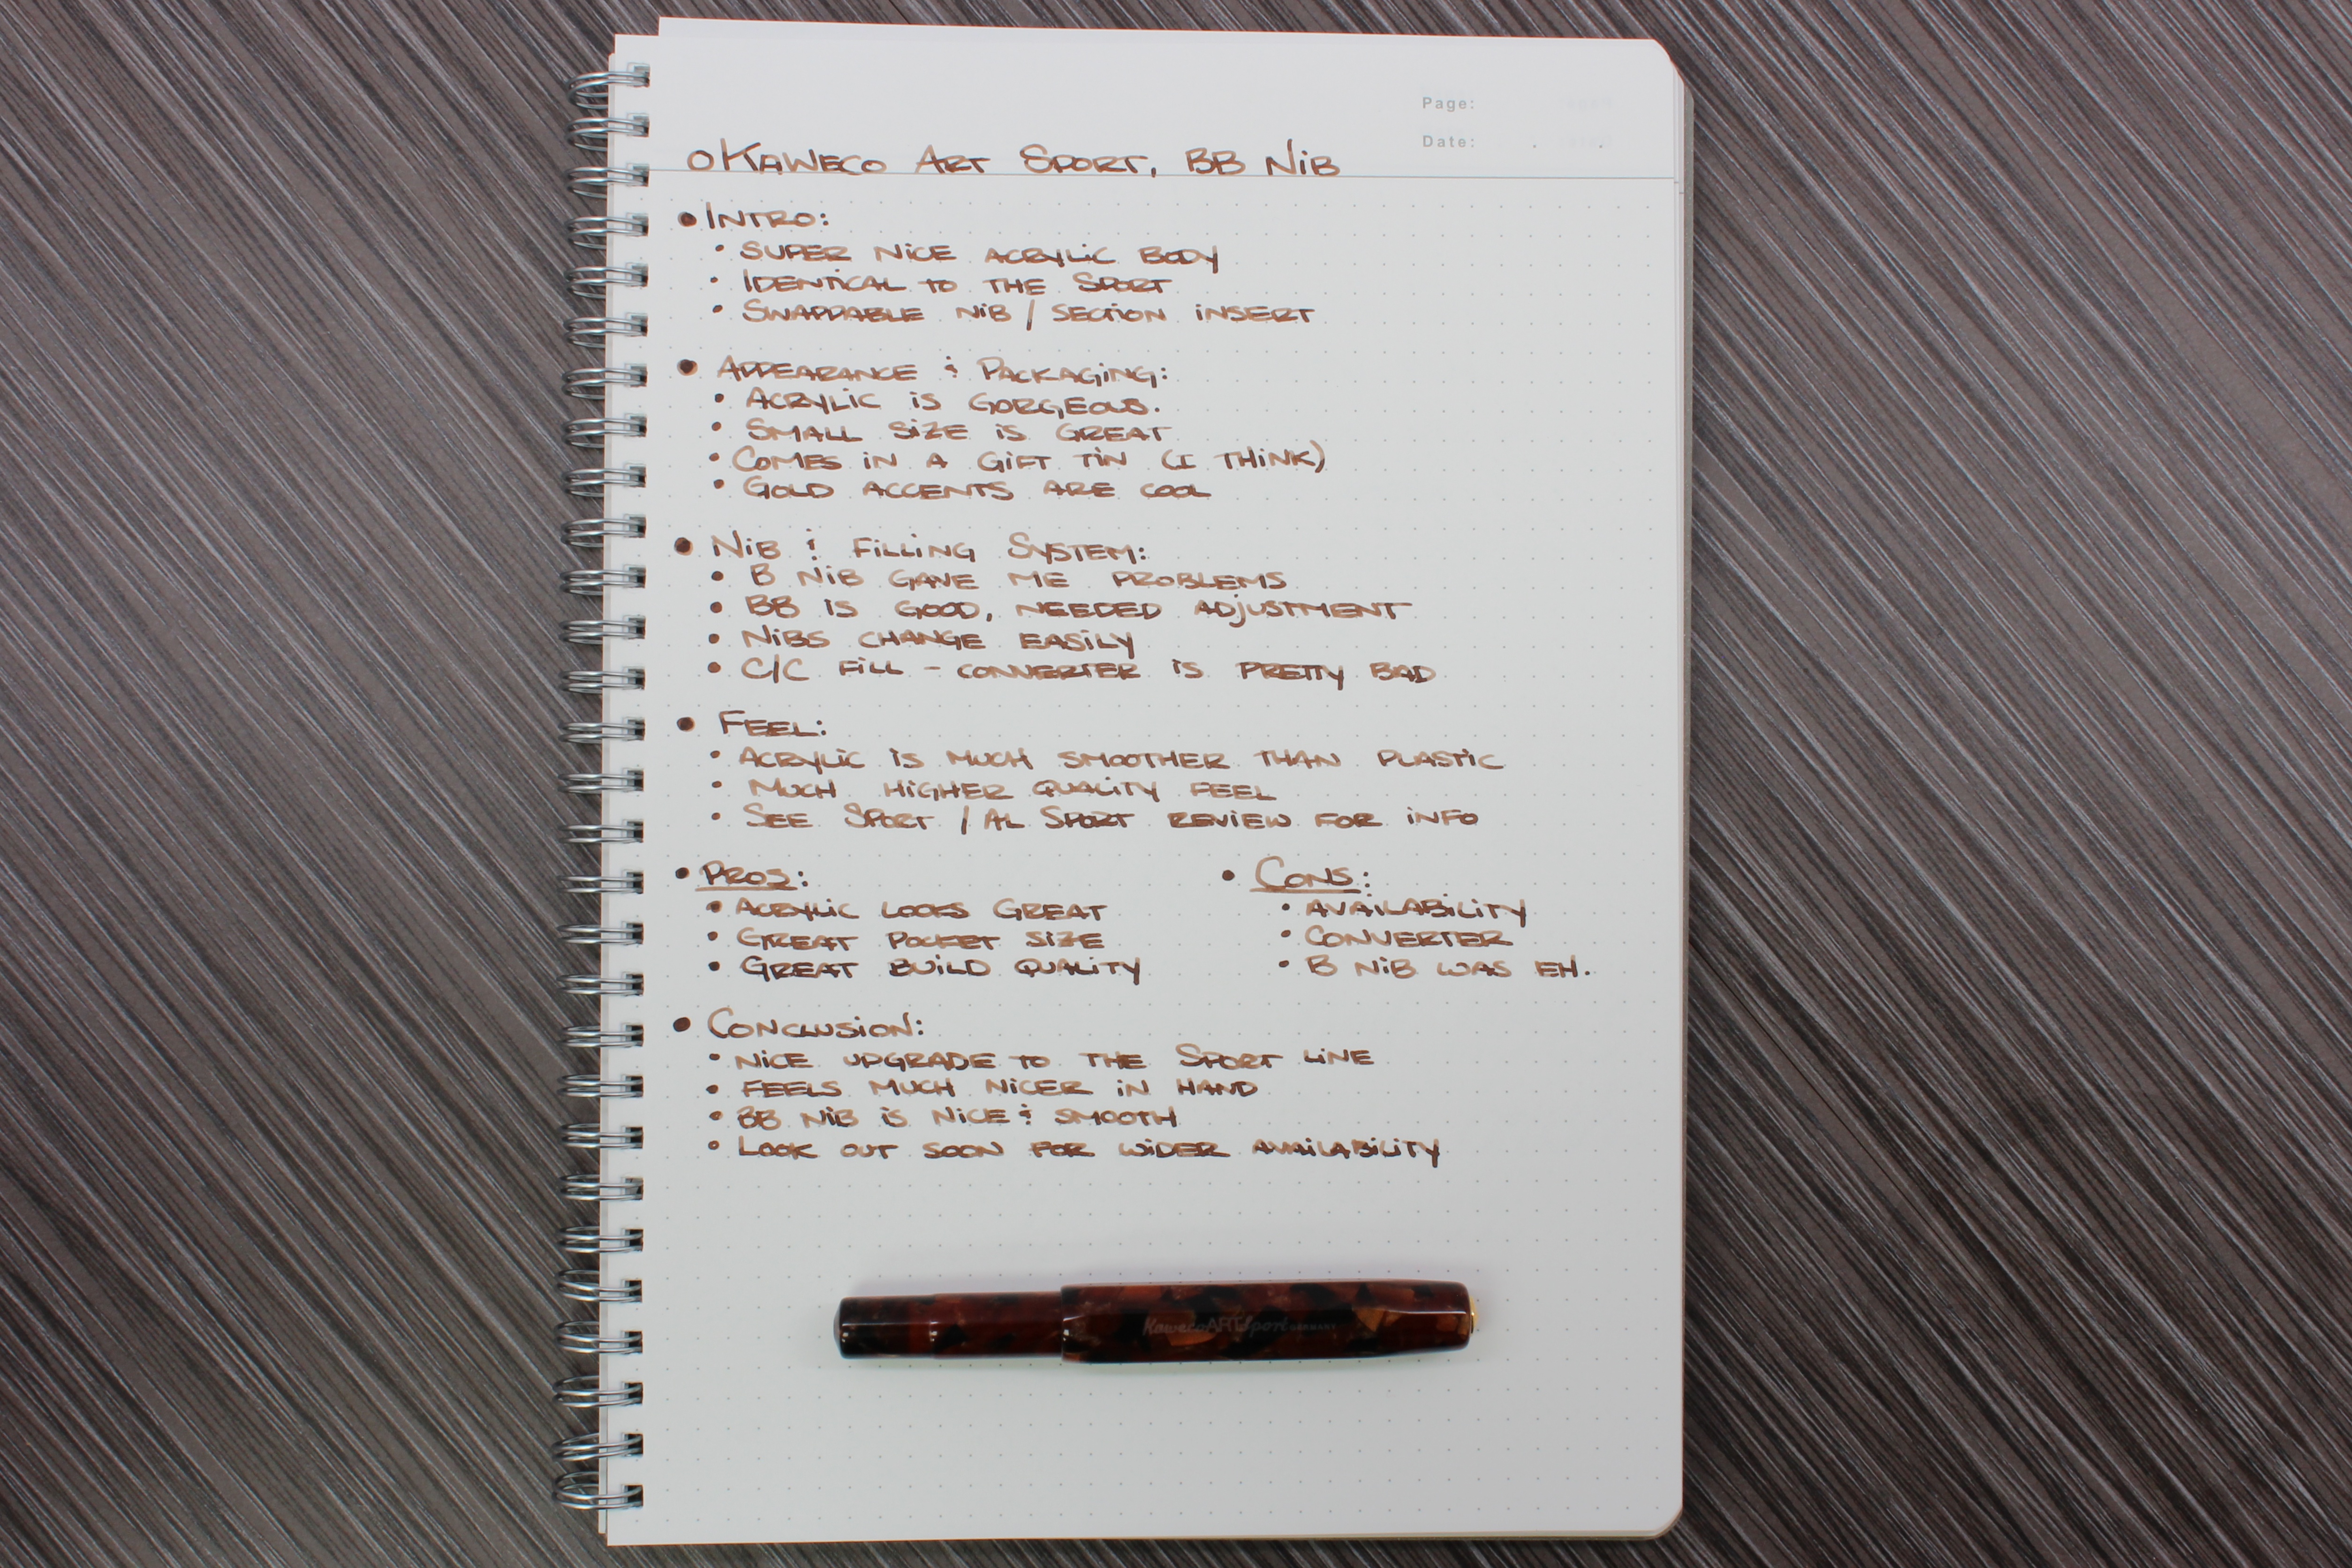 Page:
Date:
o Kaweco Art Sport, BB Nib
• Intro:
• Super nice acrylic body
• Identical to the Sport
• Swappable nib / section insert
• Appearance & Packaging:
• Acrylic is gorgeous.
• Small size is great
• Comes in a gift tin (I think)
• Gold accents are cool
• Nib & Filling System:
• B nib gave me problems
• BB is good, needed adjustment
• Nibs change easily
• C/C fill - converter is pretty bad
• Feel:
• Acrylic is much smoother than plastic
• Much higher quality feel
• See Sport / AL Sport review for info
• Pros:
• Acrylic looks great
• Great pocket size
• Great build quality
• Cons:
• Availability
• Converter
• B nib was eh.
• Conclusion:
• Nice upgrade to the Sport line
• Feels much nicer in hand
• BB nib is nice & smooth
• Look out soon for wider availability
Kaweco ART Sport GERMANY